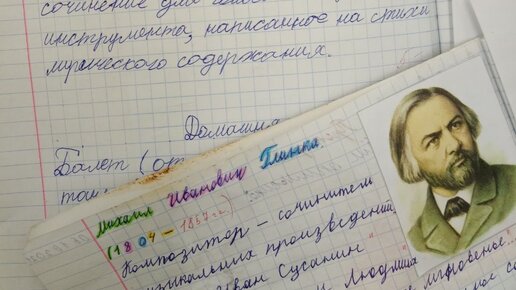 сочинение для
инструмента, написанное на стихи
лирического содержания.
Домашня
Балет (от
Михаил Иванович Глинка.
(1804 – 1857 г.г.)
Композитор – сочинитель
музыкальных произведений.
Иван Сусанин"
Людмила
мгновенье..."